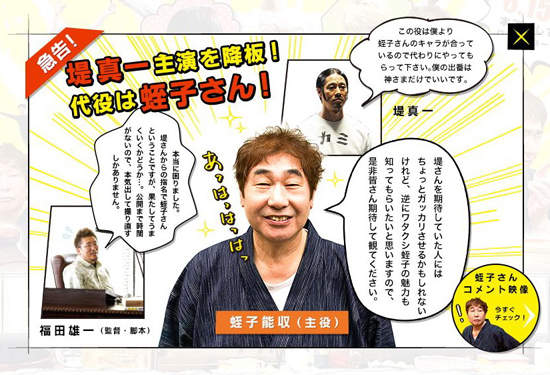 急告!
堤真一主演を降板!
代役は蛭子さん!
この役は僕より
蛭子さんのキャラが合って
いるので代わりにやっても
らって下さい。僕の出番は
神さまだけでいいです。
カミ
堤真一
本当に困りました。
堤さんからの指名で蛭子さん
ということですが、果たしてうま
くいくかどうか…。公開まで時間
がないので、本気出して撮り直す
しかありません。
福田雄一(監督・脚本)
あっはっはっはっ
蛭子能収(主役)
堤さんを期待していた人には
ちょっとガッカリさせるかもしれない
けれど、逆にワタクシ蛭子の魅力も
知ってもらいたいと思いますので、
是非皆さん期待して観てください。
蛭子さん
コメント映像
今すぐ
チェック!